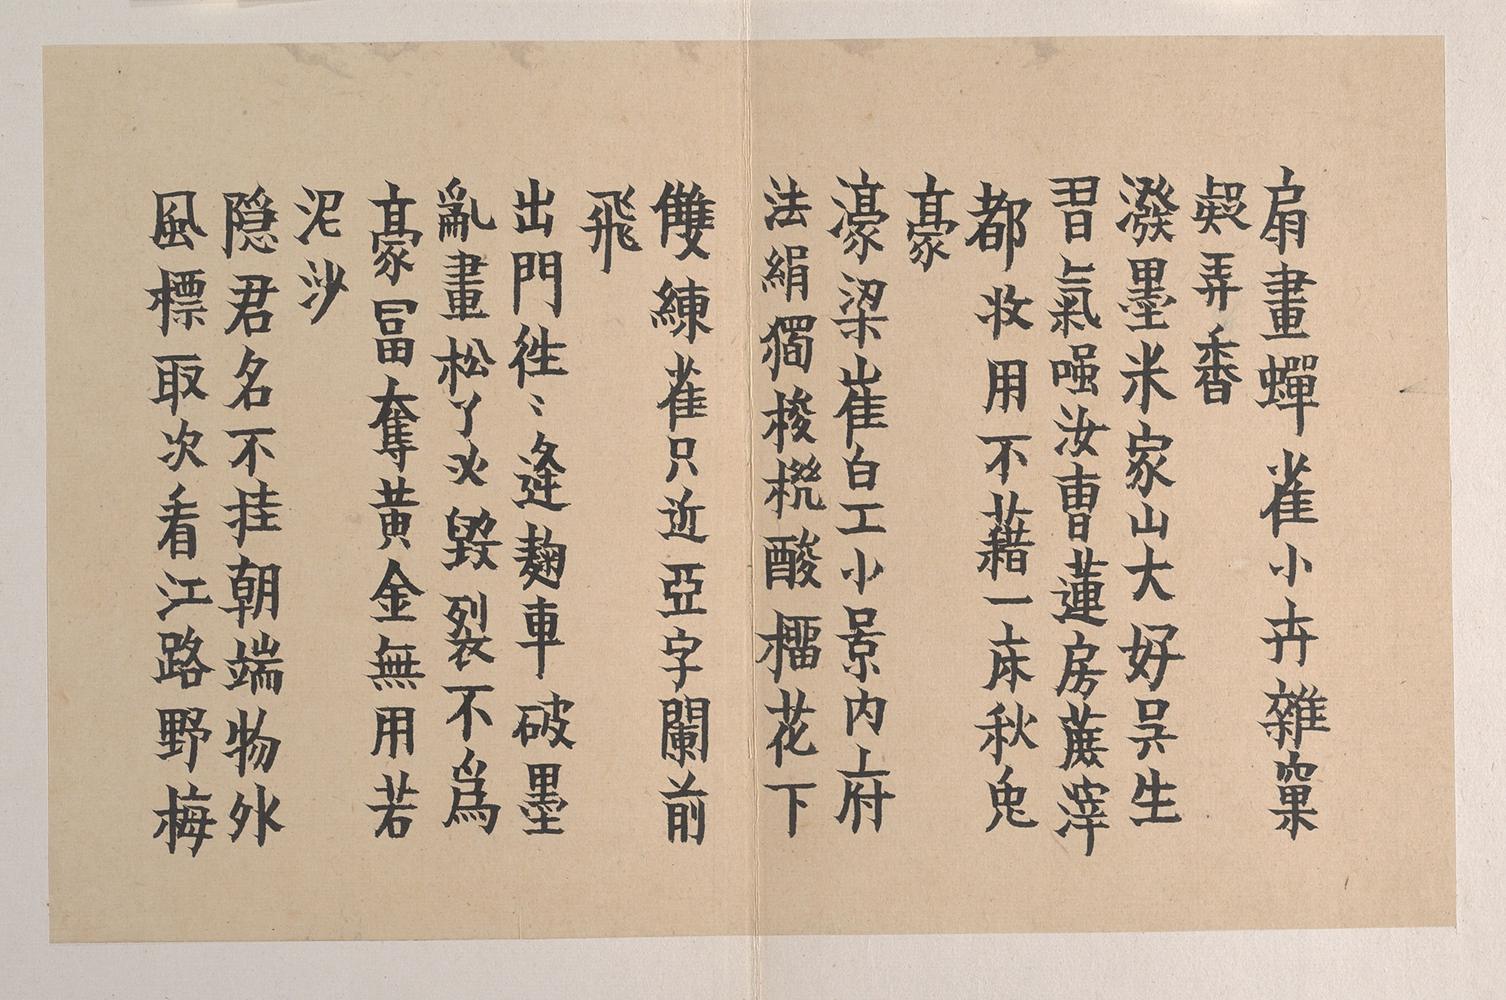 扇畫蟬雀小卉雜窠
弄香
潑墨米家山大好吳生
習氣嗤汝曹蓮房蔗滓
都收用不藉一床秋兔
豪
濠梁崔白工小景內府
法絹獨梭梳酸榴花下
雙練雀只近亞字闌前
飛
出門往〻逢麴車破墨
亂畫松丫叉毀裂不為
豪富奪黃金無用若
泥沙
隱君名不挂朝端物外
風標取次看江路野梅